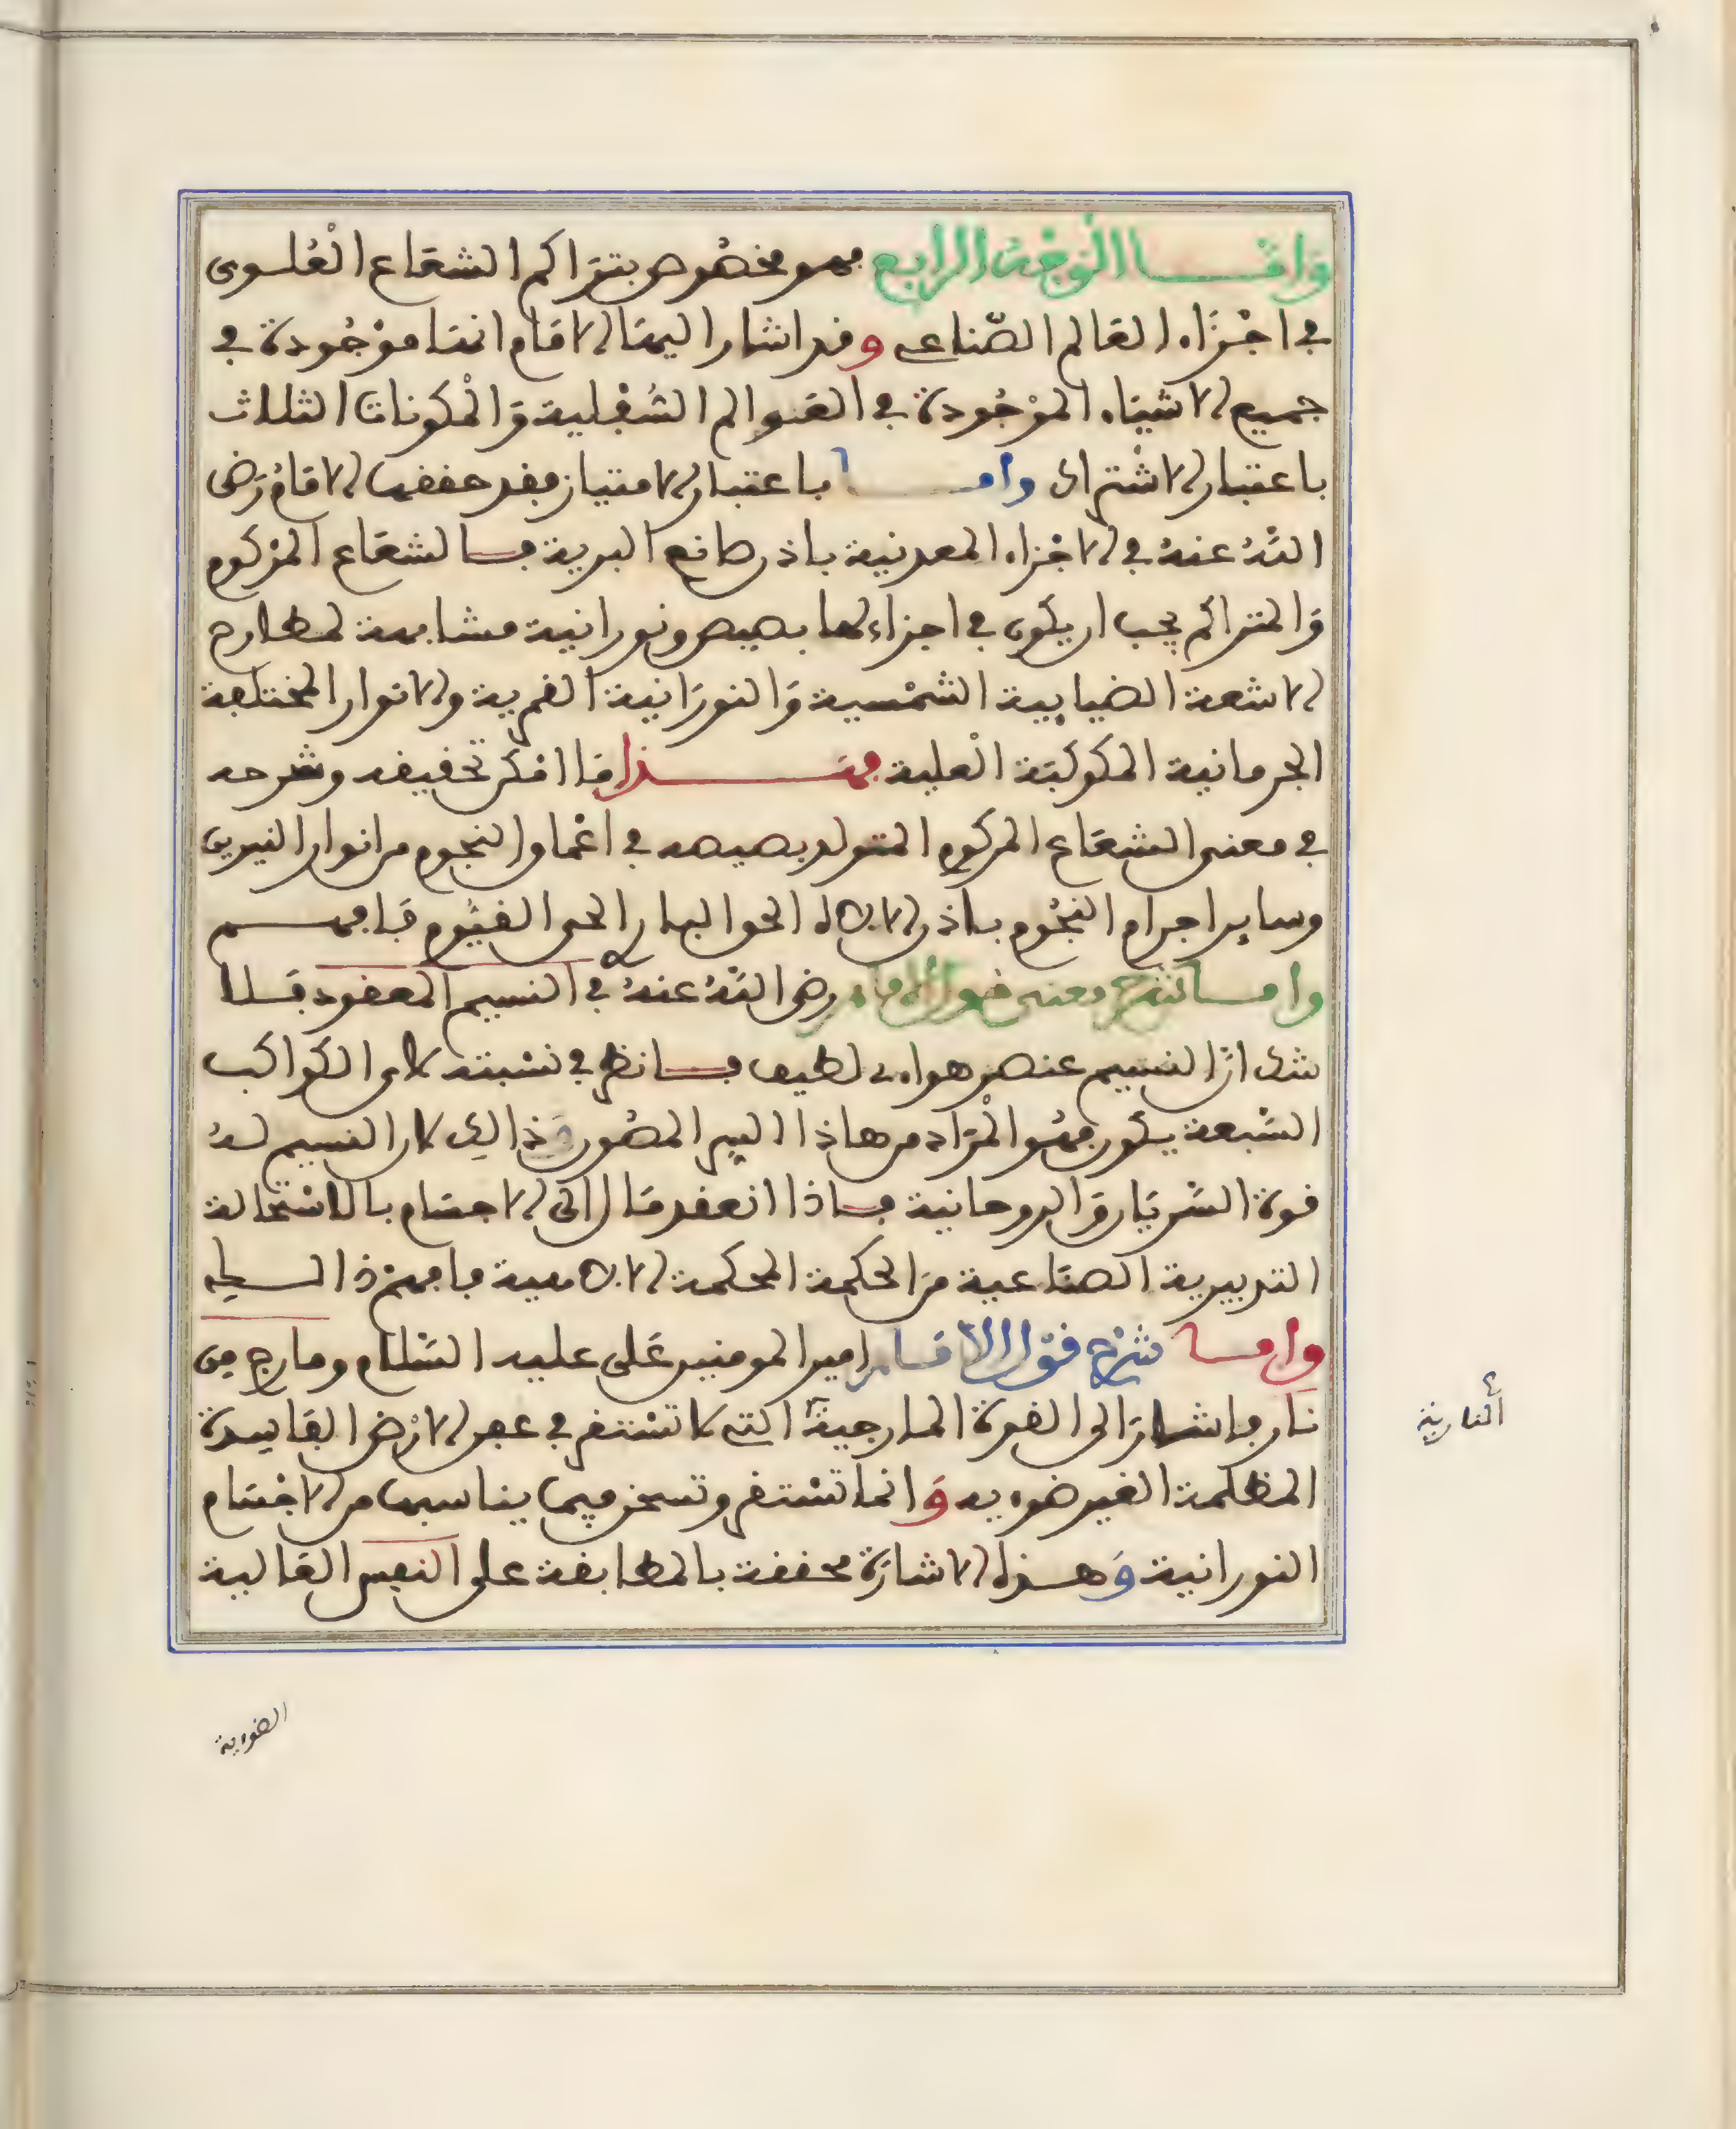 وَامَّا الْوَجْهُ الرابع فهو مخصُوص بتَرَاكم الشعَاع الْعُلوى
في اجْزَاء العَالم الصّناعى وقد اشار اليهَا الامَام انهَا موْجُودة في
جميع الاشيَاء الموْجُودة في العَوالم السُّفْلية وَالْمكونات الثلاث
باعتبار الاشْتراك وامـا باعتبار الامتياز فقد حققها الامَام رَضى
اللهُ عنهُ في الاجْزاء المعدنية باذن صانع البرية فالشعَاع المرْكوم
وَالمتراكم يجب ان يكون في اجزاءلها بصيص ونورانية مشابهة لمطارح
الاشعة الضيايية الشمْسية وَالنورَانية القمرية والانوار المختلفة
الجرمانية الكوكبَة الْعلية فهَـذا مَا امْكن تحقيقه وشرحه
في معنى الشعَاع المركوم المتولد بصيصه في اعْماق النجوم من انوار النيرين
وساير اجرام النجُوم باذن الالاه الحق البار الحى القيُّوم فَافهـم
وامـا شرح معنى قول الامام رضى اللهُ عنهُ في النسيم المعقود فلا
شك انَّ النسيم عنصر هواءى لطيف فانظر في نسْبته لاى الكواكب
السّبعة يكون فهُو الْمرَاد من هاذا السر المصُون وَذالك لان النسيم لهُ
قوة السّريَان وَالروحانية فاذا انعقد مَال الى الاجسَام بالاسْتحالة
التدبيرية الصنَاعية مَن الحكمة المحكمة الالاهية فافهمْ ذالـك
وامـا شرْح قوْل الامَام امير المومنين عَلى عليه السّلام ومارج من
نار فاشارَ الى القوة المارجيةُ التى لا تسْتقر في عمق الارْض الفاسدة
المظلمة الغير ضوءيه وَانما تسْتقر وتسخن فيما يناسبها من الاجْسَام
النورانية وَهـذه الاشارَة محققة بالمطابقة على النفس الغَالبة
النارية
الضوءية